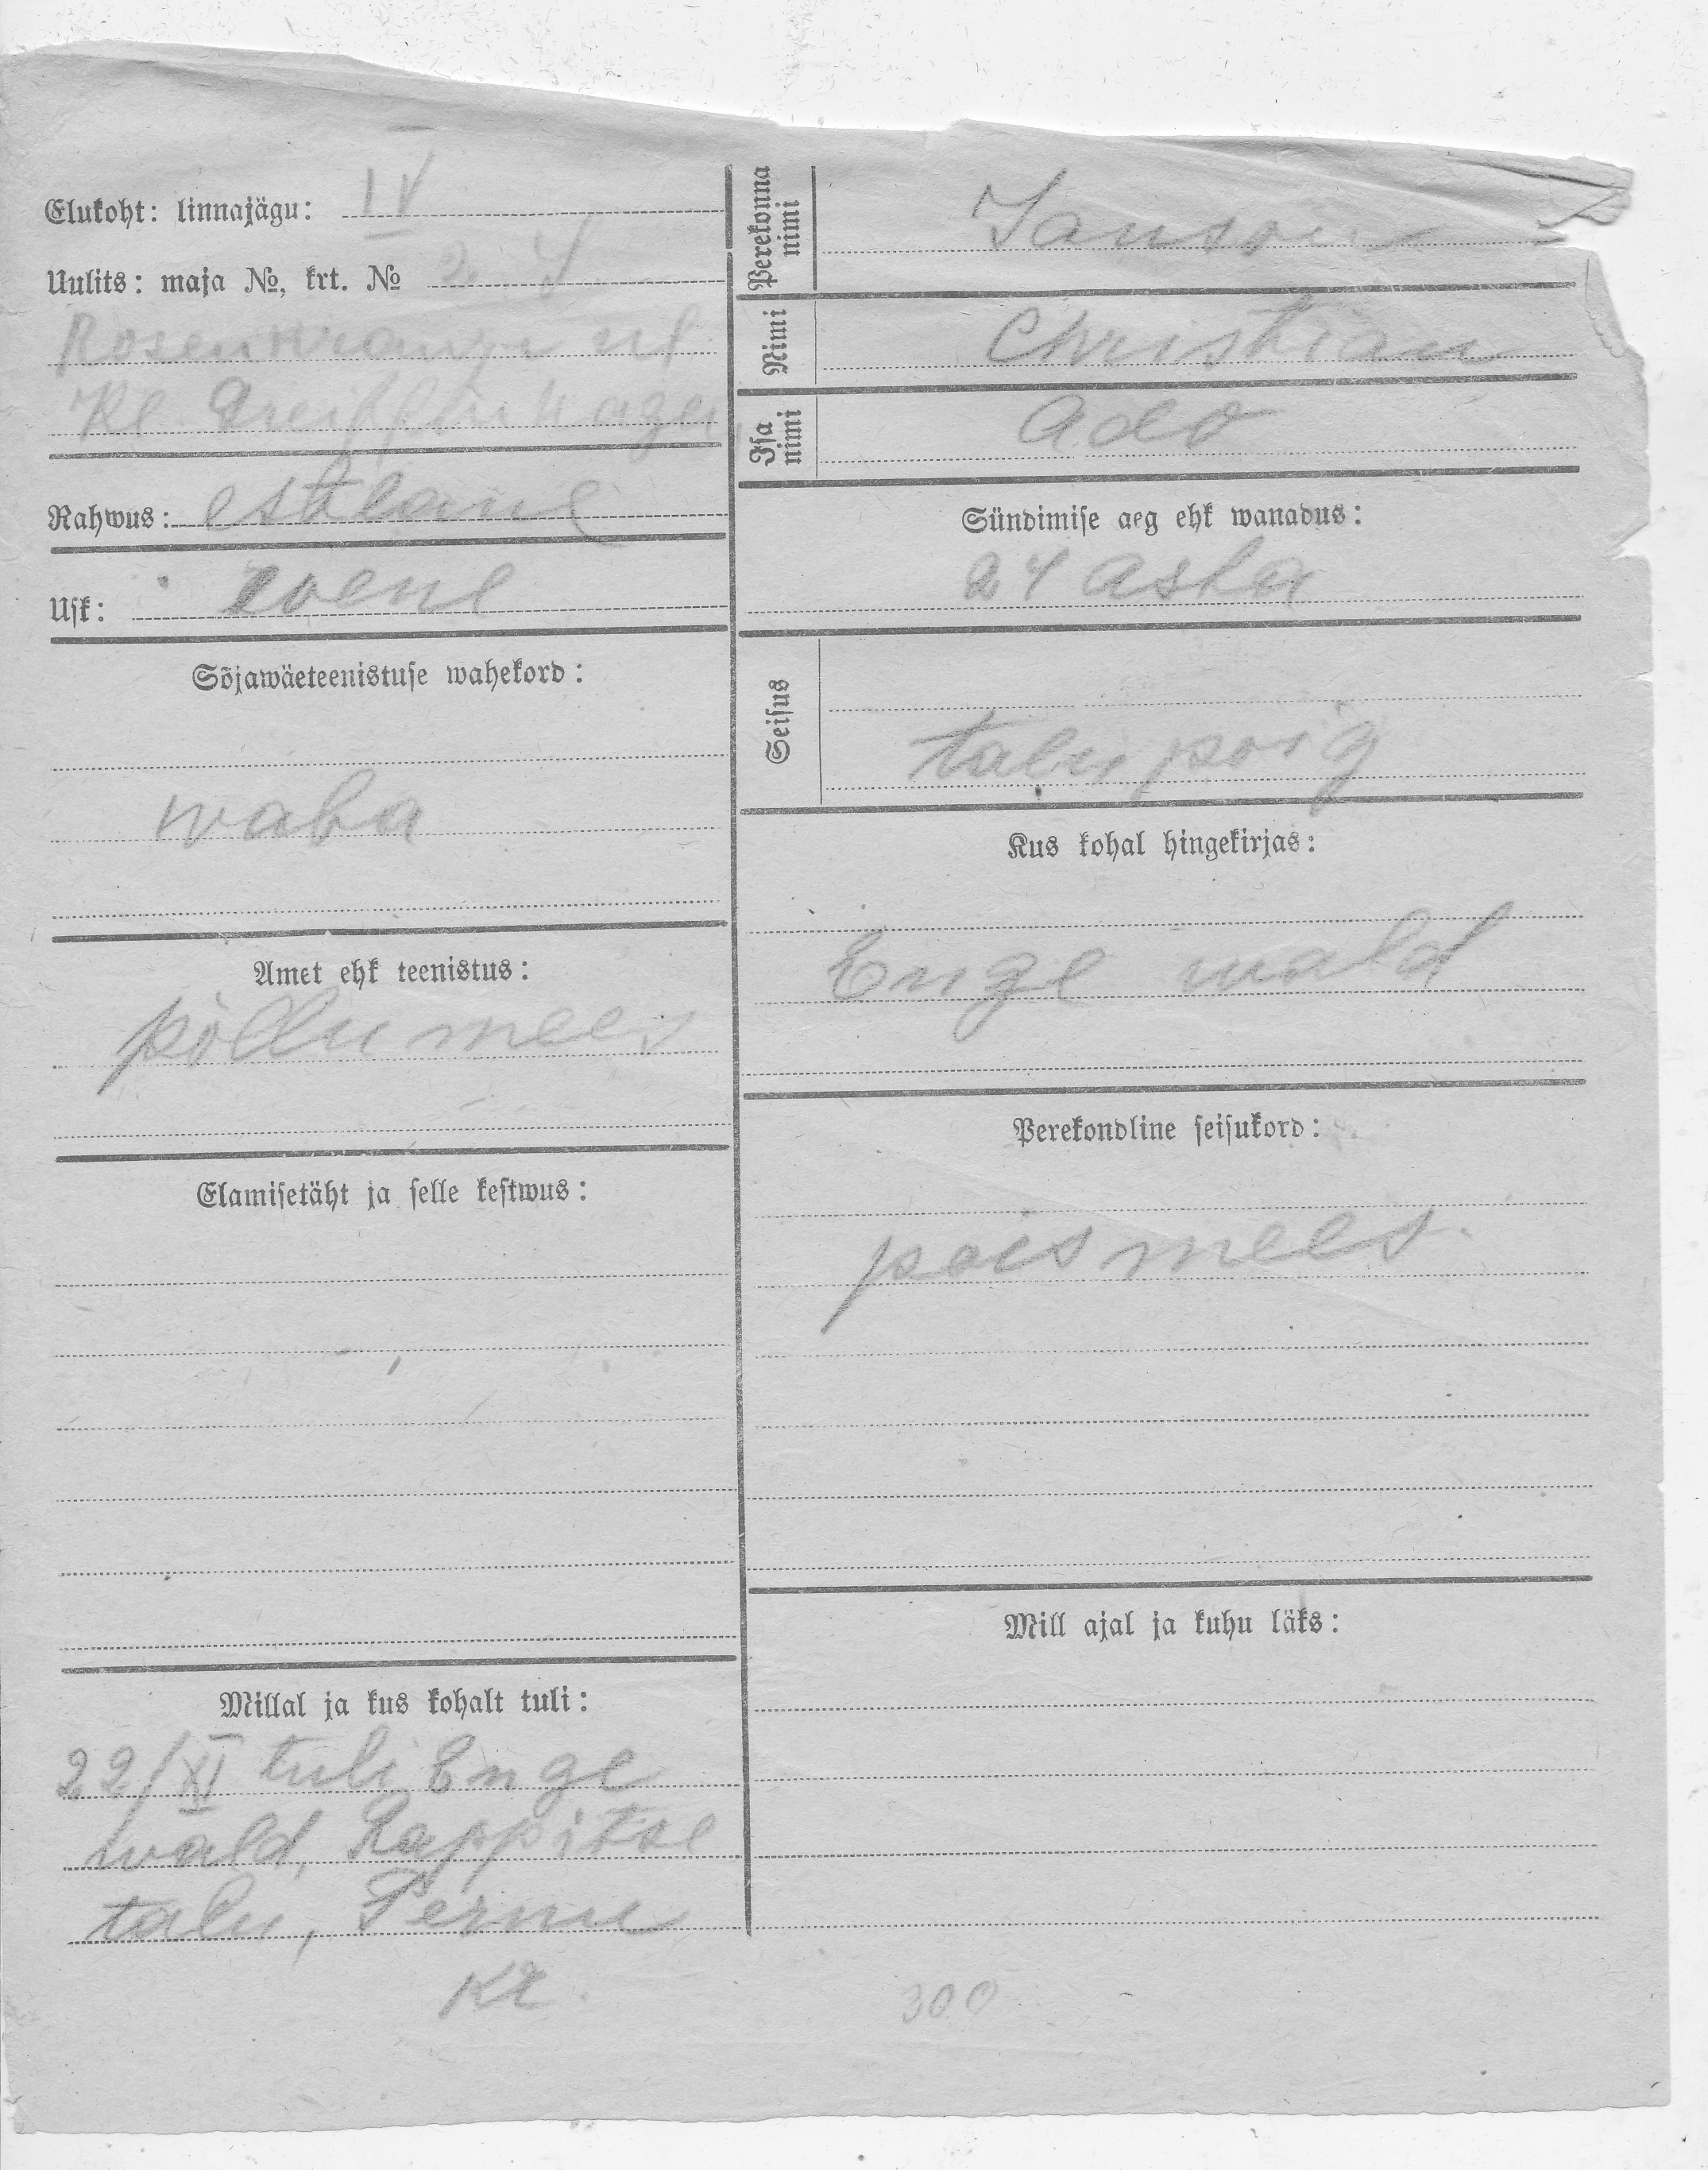 Elukoht: linnajägu: IV
Uulits: maja №, krt. № 2 4
Rosenkranzi ul
Kl.
Rahwus: estlane
Usk: wene
Sõjawäeteenistuse wahekord:
waba
Amet ehk teenistus:
põllumees
Elamisetäht ja selle kestwus:
Millal ja kus kohalt tuli:
22/XI tuli Enge
wald, Rappitse
talu, Pernu
Kr.
Perekonna nimi Janson
Nimi Christian
Isa nimi Ado
Sündimise aeg ehk wanadus:
24 asta
Seisus
talupoig
Kus kohal hingekirjas:
Enge wald
Perekondline seisukord:
poismees.
Mill ajal ja kuhu läks:
300